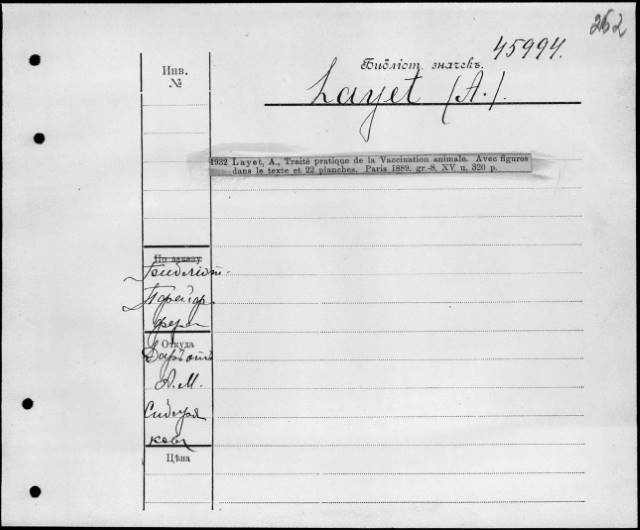 252
45994.
Инв.
№
Библіот. значекъ.
Layet (A.).
1932 Layet, A., Traité pratique de la Vaccination animale. Avec figures
dans le texte et 22 planches. Paris 1889. gr-8. XV u. 320 p.
По заказу
Библіот.
Откуда
Даръ отъ
А.М.
Сибиря
кова
Цѣна